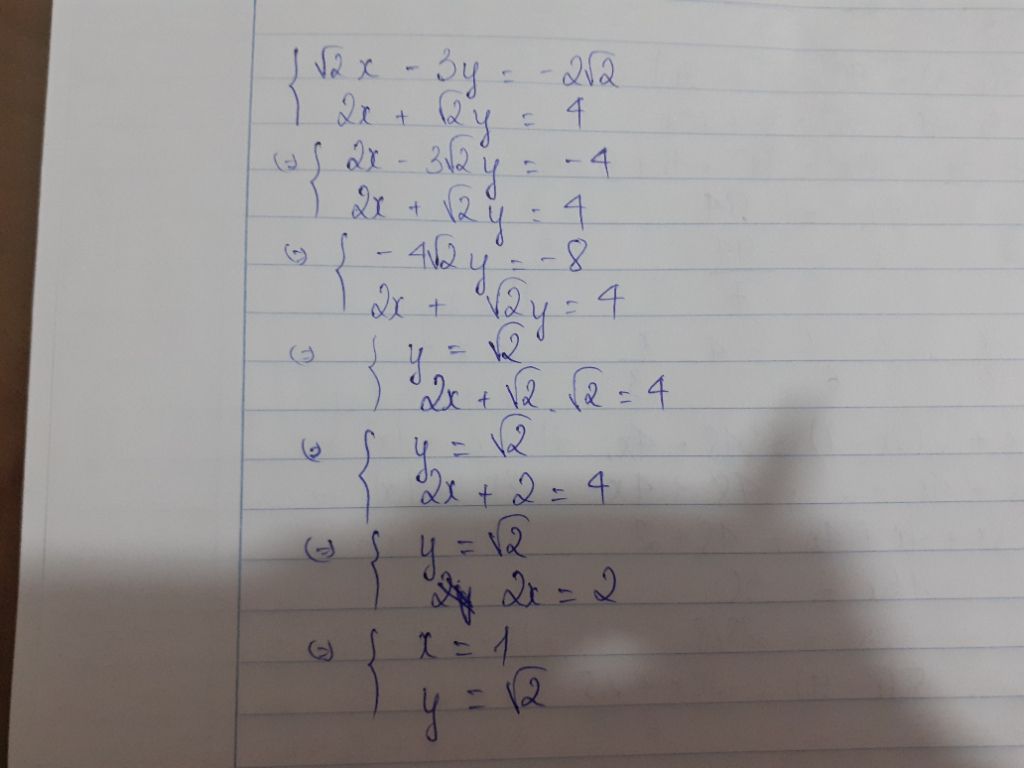 { √2x - 3y = -2√2
2x + √2y = 4
(=) { 2x - 3√2y = -4
2x + √2y = 4
(=) { -4√2y = -8
2x + √2y = 4
(=) { y = √2
2x + √2.√2 = 4
(=) { y = √2
2x + 2 = 4
(=) { y = √2
2x = 2
(=) { x = 1
y = √2